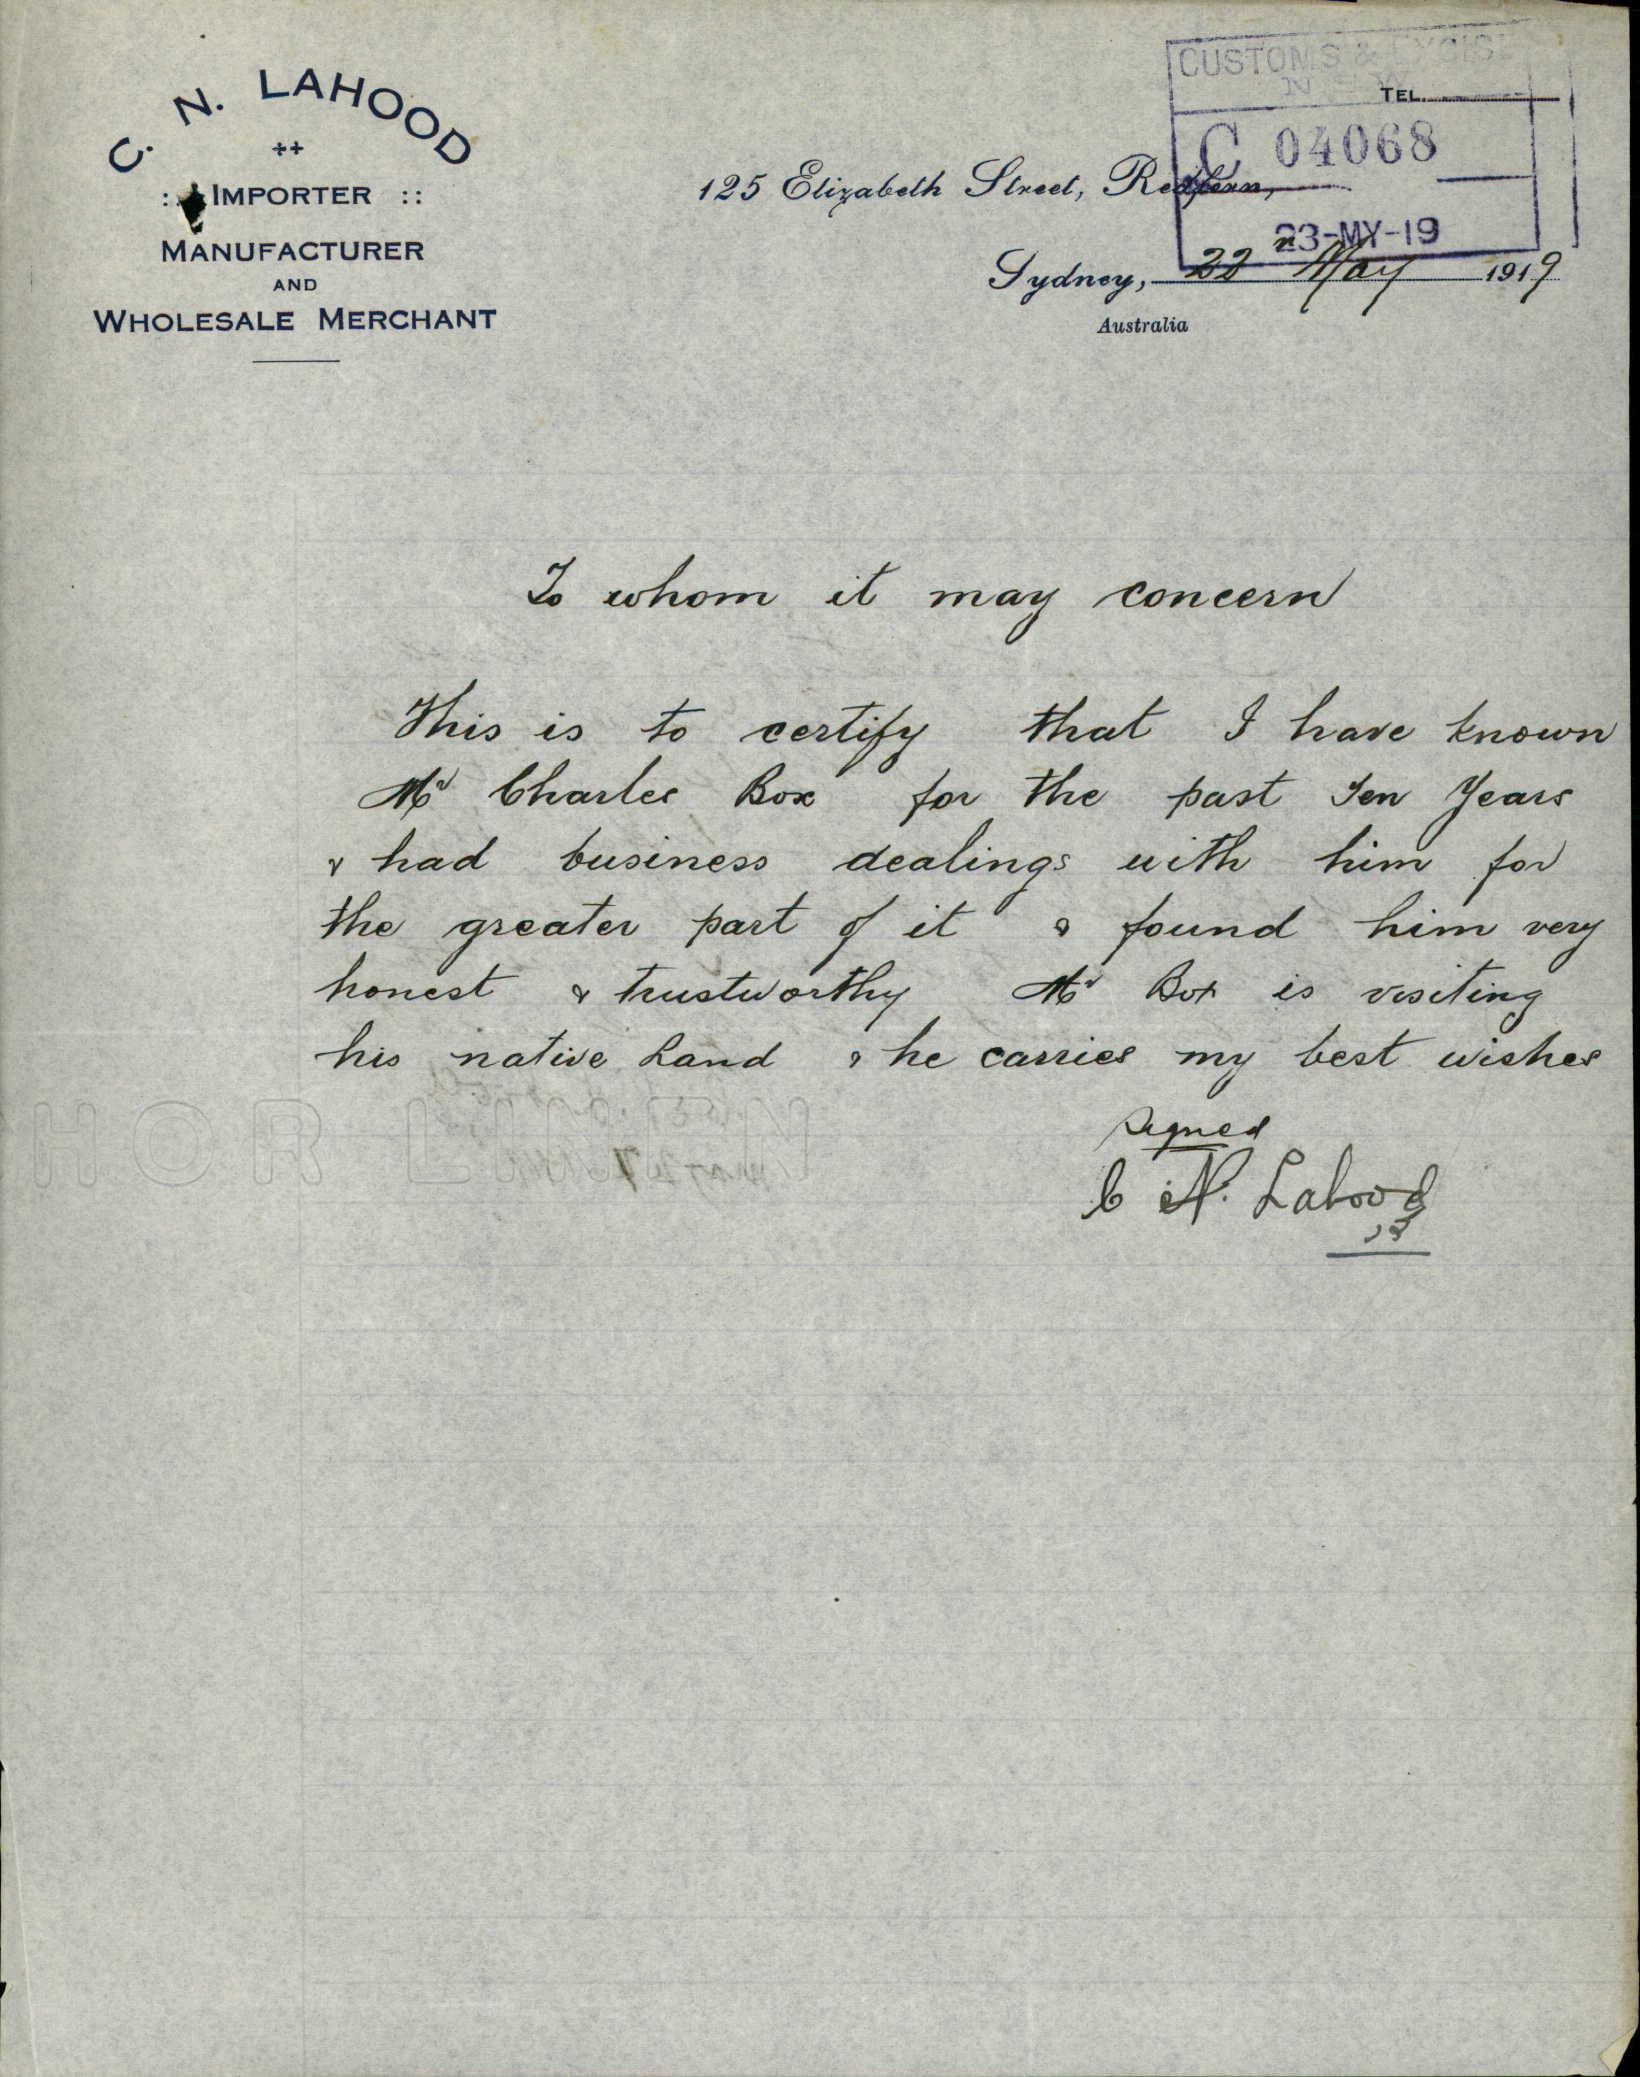 C. N. LAHOOD
IMPORTER ::
MANUFACTURER
AND
WHOLESALE MERCHANT
CUSTOMS & EXCISE
TEL.
C 04068
125 Elizabeth Street, Redfern,
23-MY-19
Sydney, 22n May 1919
Australia
To whom it may concern
This is to certify that I have known
Mr Charles Box for the past Ten Years
& had business dealings with him for
the greater part of it & found him very
honest & trustworthy Mr Box is visiting
his native Land & he carries my best wishes
Signed
C N. Lahood